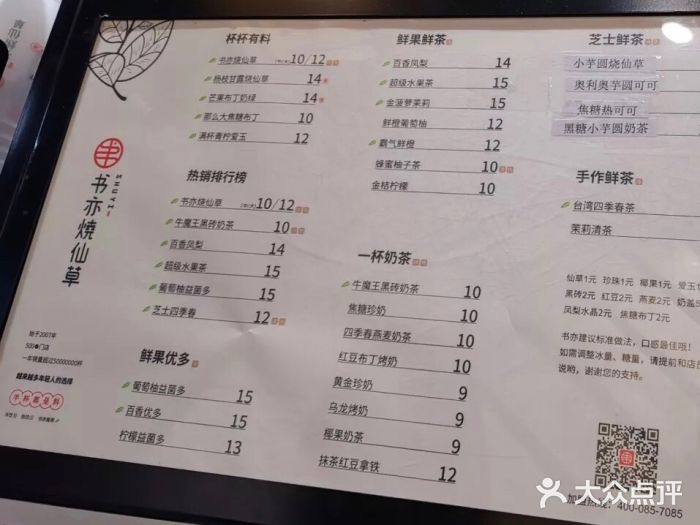 杯杯有料
书亦烧仙草 10/12
杨枝甘露烧仙草 14
芒果布丁奶绿 14
那么大焦糖布丁 10
满杯青柠爱玉 12
热销排行榜
书亦烧仙草 10/12
牛魔王黑砖奶茶 10
百香凤梨 14
超级水果茶 15
葡萄柚益菌多 15
芝士四季春 12
鲜果优多
葡萄柚益菌多 15
百香优多 15
柠檬益菌多 13
鲜果鲜茶
百香凤梨 14
超级水果茶 15
金菠萝茉莉 15
鲜橙葡萄柚 12
霸气鲜橙 12
蜂蜜柚子茶 10
金桔柠檬 10
一杯奶茶
牛魔王黑砖奶茶 10
焦糖珍奶 10
四季春燕麦奶茶 10
红豆布丁烤奶 10
黄金珍奶 9
乌龙烤奶 9
椰果奶茶 9
抹茶红豆拿铁 12
芝士鲜茶
小芋圆烧仙草
奥利奥芋圆可可
焦糖热可可
黑糖小芋圆奶茶
手作鲜茶
台湾四季春茶
茉莉清茶
仙草1元 珍珠1元 椰果1元 爱玉1
黑砖2元 红豆2元 燕麦2元 奶盖
凤梨水晶2元 焦糖布丁2元
书亦建议标准做法，口感最佳哦！
如需调整冰量、糖量，请提前和店员
说哟，谢谢您的支持。
加盟热线：400-085-7085
书亦燒仙草
SHUYI
始于2007年
500+门店
一年销量超过50000000杯
越来越多年轻人的选择
半杯都是料
大众点评